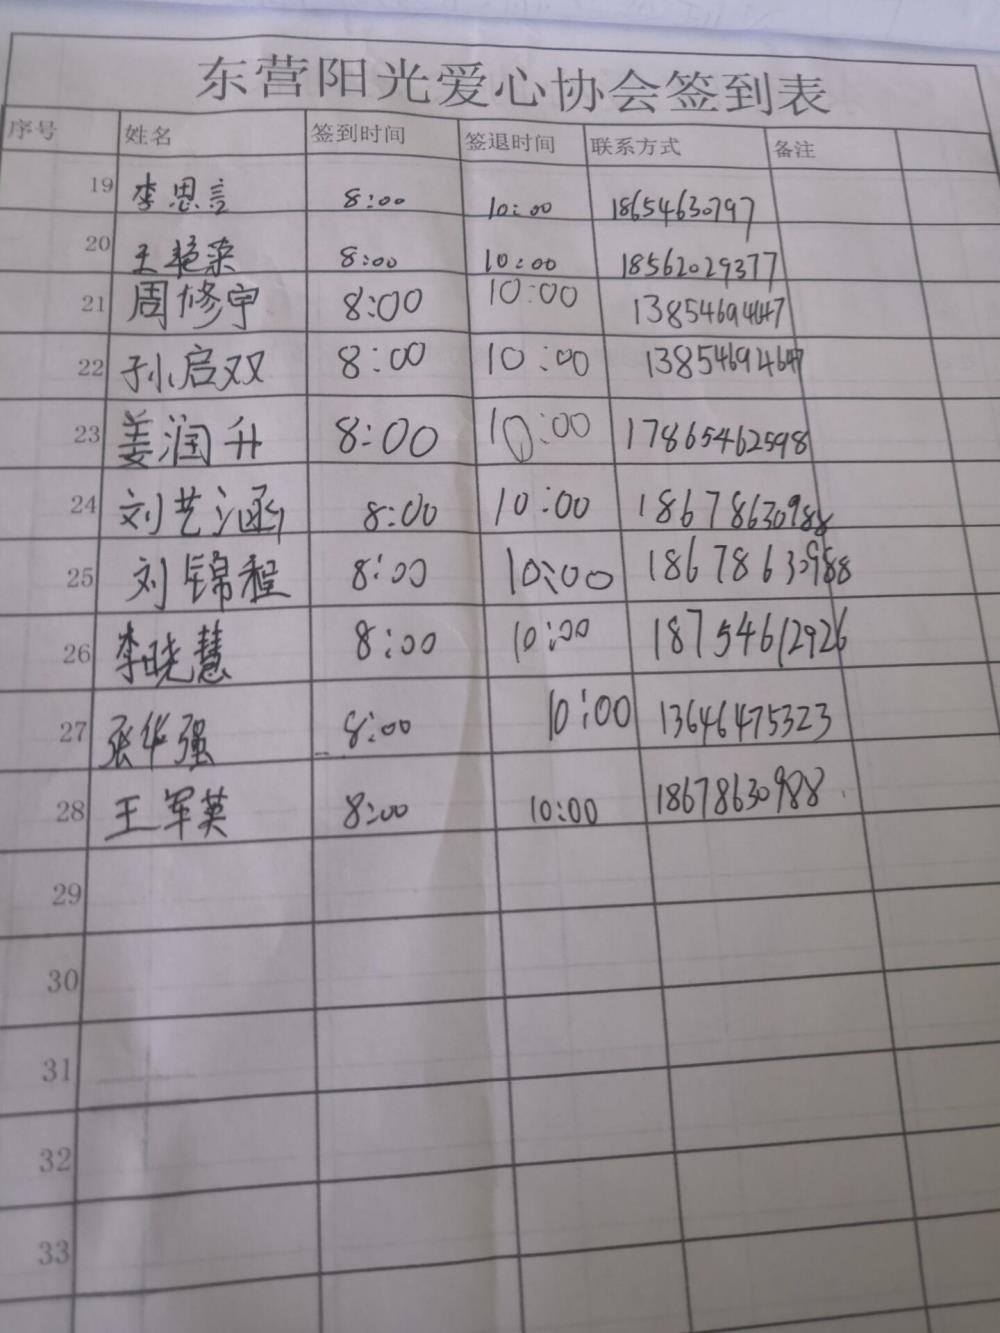 东营阳光爱心协会签到表
序号 姓名 签到时间 签退时间 联系方式 备注
19 李思言 8:00 10:00 18654630797
20 王艳荣 8:00 10:00 18562029377
21 周修宇 8:00 10:00 13854694647
22 孙启双 8:00 10:00 13854694647
23 姜润升 8:00 10:00 17865462598
24 刘艺涵 8:00 10:00 18678630988
25 刘锦程 8:00 10:00 18678630988
26 李晓慧 8:00 10:00 18754612926
27 张华强 8:00 10:00 13646475323
28 王军英 8:00 10:00 18678630988
29
30
31
32
33